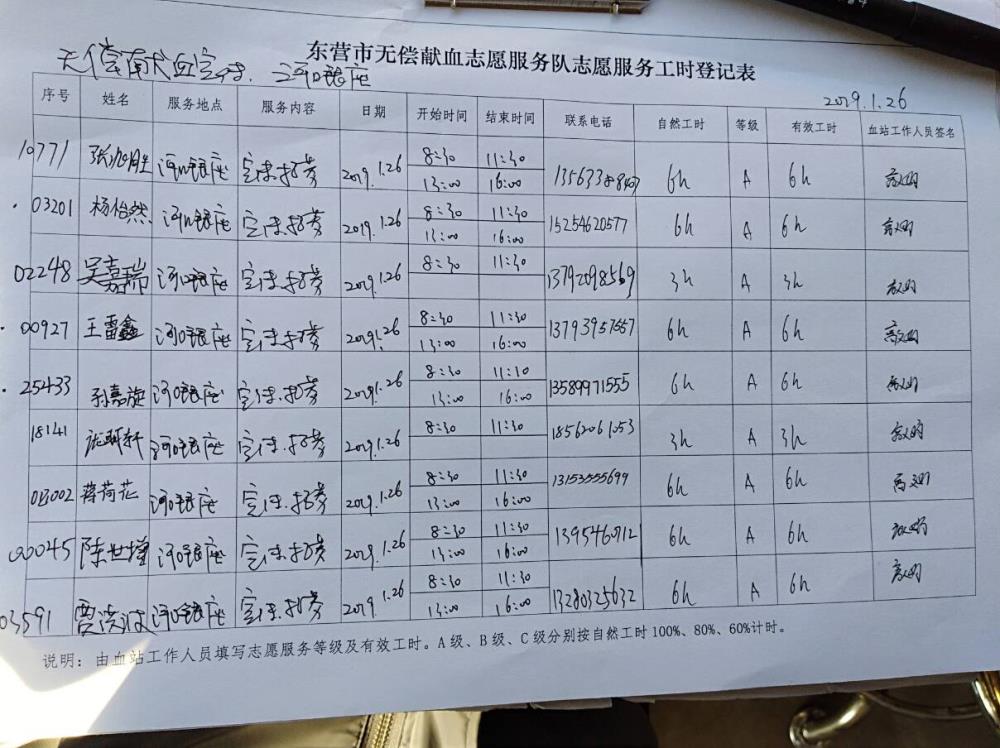 东营市无偿献血志愿服务队志愿服务工时登记表
无偿献血宣传. 河口银座
2019.1.26
序号 姓名 服务地点 服务内容 日期 开始时间 结束时间 联系电话 自然工时 等级 有效工时 血站工作人员签名
10771 张旭胜 河口银座 宣传.招募 2019.1.26 8:30 11:30 6h A 6h
13:00 16:00
03201 杨怡然 河口银座 宣传.招募 2019.1.26 8:30 11:30 15254620577 6h A 6h
13:00 16:00
02248 吴嘉瑞 河口银座 宣传.招募 2019.1.26 8:30 11:30 13792098569 3h A 3h
00927 王雷鑫 河口银座 宣传.招募 2019.1.26 8:30 11:30 13793957557 6h A 6h
13:00 16:00
25433 孙嘉旋 河口银座 宣传.招募 2019.1.26 8:30 11:10 13589971555 6h A 6h
13:00 16:00
18141 河口银座 宣传.招募 2019.1.26 8:30 11:30 18562061253 3h A 3h
03002 蒋荷花 河口银座 宣传.招募 2019.1.26 8:30 11:30 13153555699 6h A 6h
13:00 16:00
00045 陈世增 河口银座 宣传.招募 2019.1.26 8:30 11:30 6h A 6h
13:00 16:00
03591 贾洪波 河口银座 宣传.招募 2019.1.26 8:30 11:30 13280325632 6h A 6h
13:00 16:00
说明：由血站工作人员填写志愿服务等级及有效工时。A级、B级、C级分别按自然工时100%、80%、60%计时。